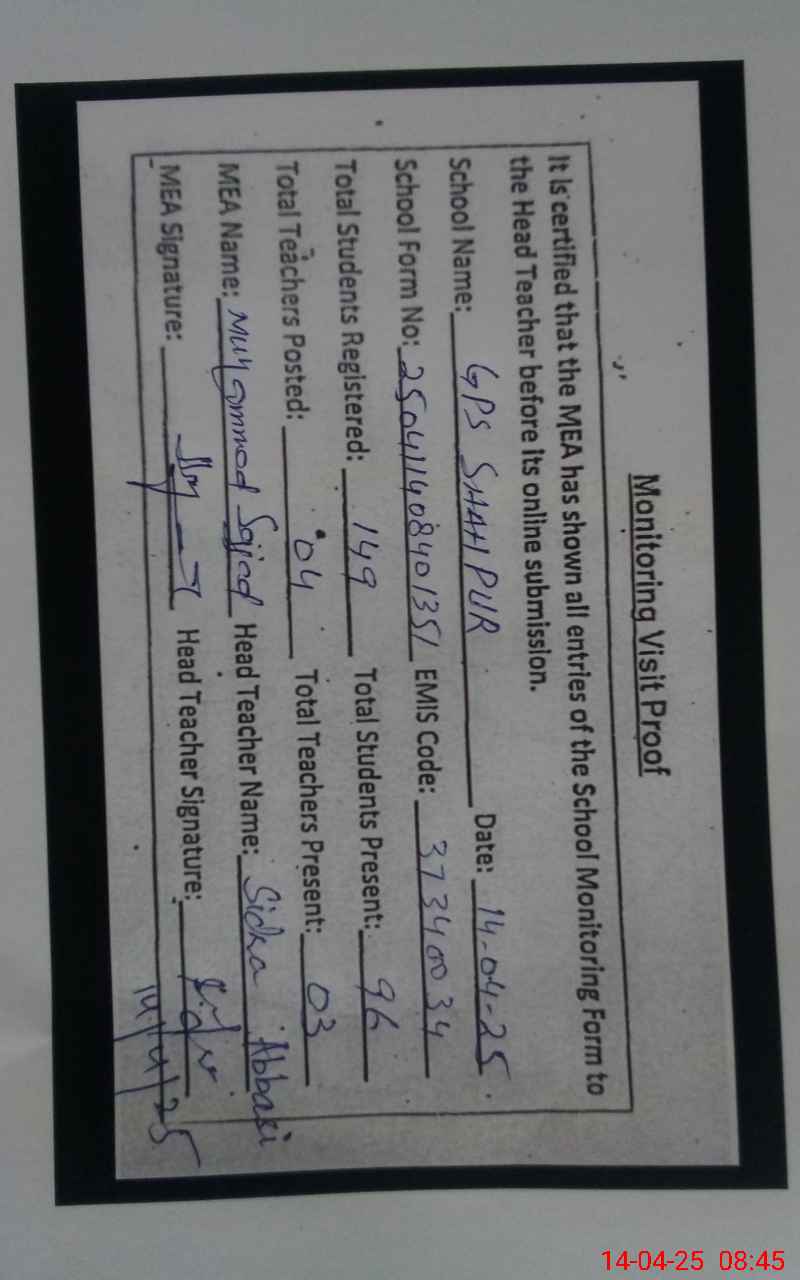 Monitoring Visit Proof
It is certified that the MEA has shown all entries of the School Monitoring Form to
the Head Teacher before its online submission.
School Name: GPS SHAH PUR Date: 14-04-25
School Form No: 250411408401351 EMIS Code: 37340034
Total Students Registered: 149 Total Students Present: 96
Total Teachers Posted: 04 Total Teachers Present: 03
MEA Name: Muhammad Sajjad Head Teacher Name: Sidra Abbasi
MEA Signature: Head Teacher Signature:
14/4/25
14-04-25 08:45